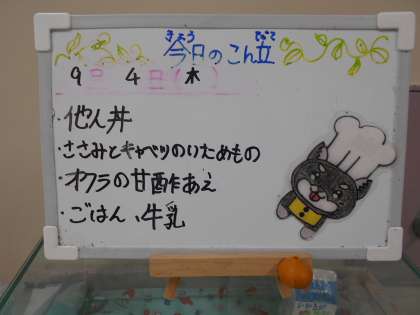 きょう　　　だて
今日のこん立
9日 4日(木)
・他人丼
・ささみとキャベツのいためもの
・オクラの甘酢あえ
・ごはん、牛乳